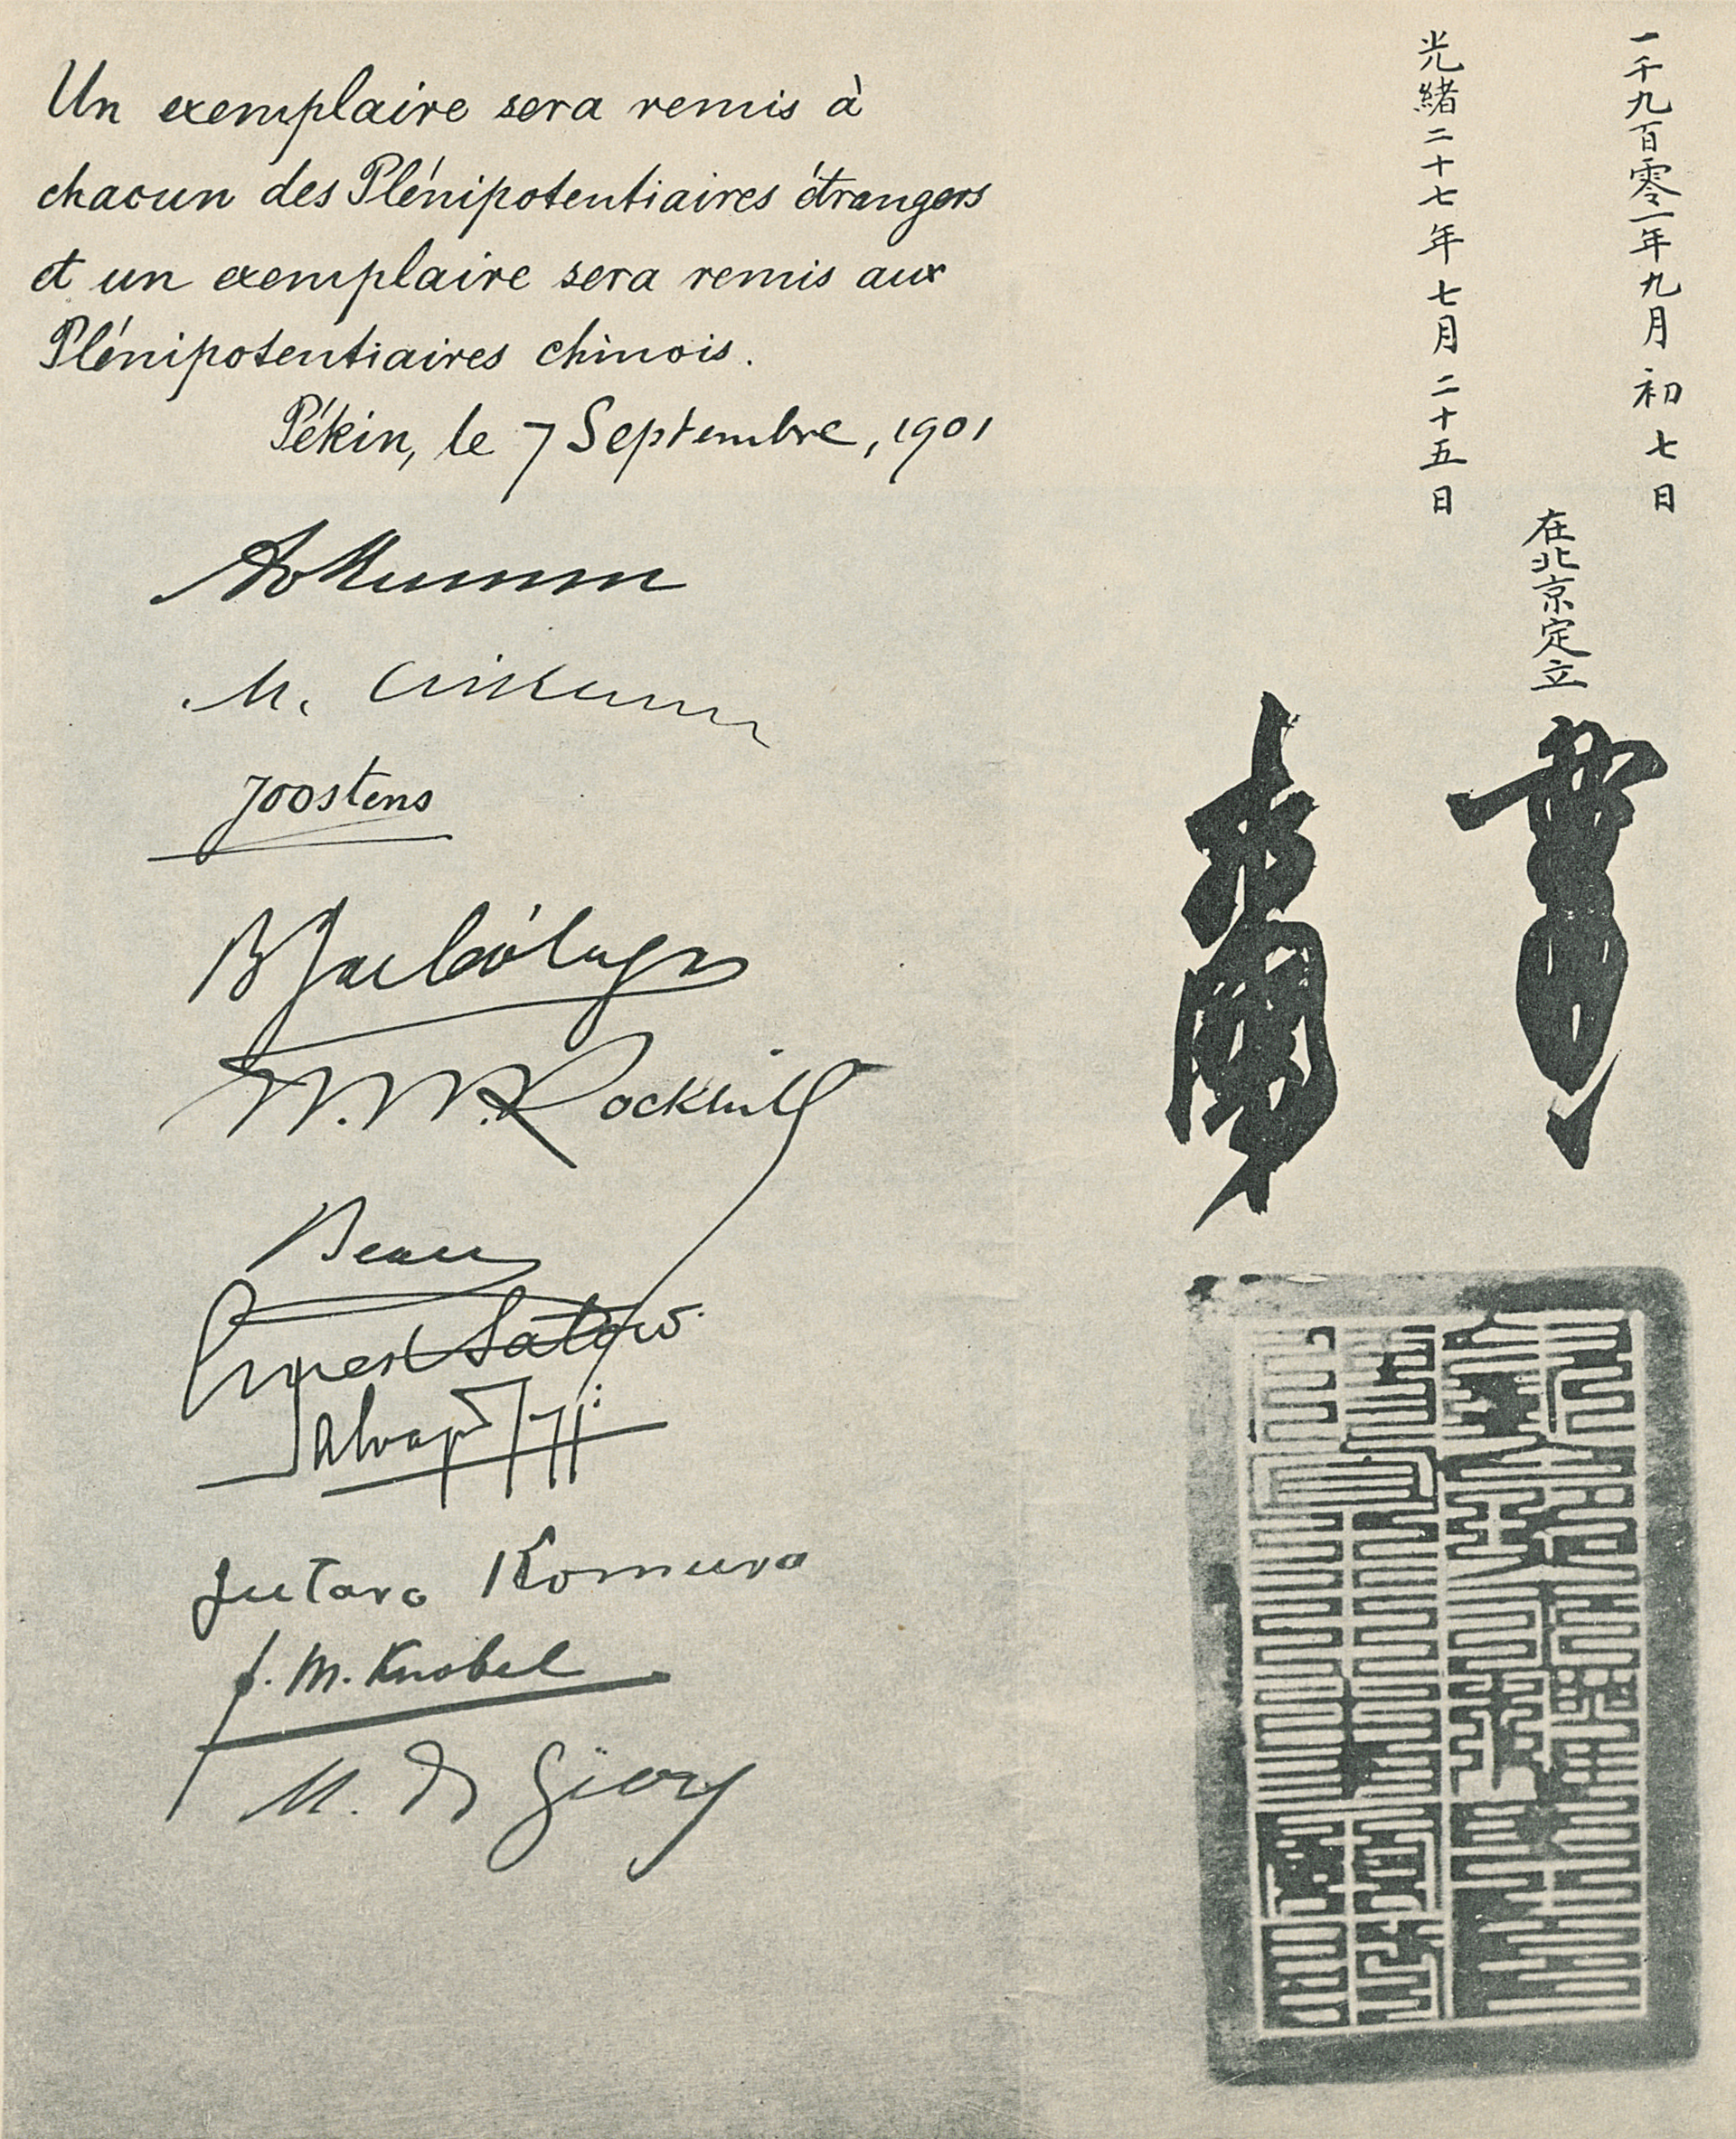 Un exemplaire sera remis à
chacun des Plénipotentiaires étrangers
et un exemplaire sera remis aux
Plénipotentiaires chinois.
Pékin, le 7 Septembre, 1901
A v Mumm
M. Czikann
Joostens
B J de Cólogan
W. W. Rockhill
Beau
Ernest Satow.
Salvago Raggi
Jutaro Komura
F. M. Knobel
M. de Giers
一千九百零一年九月初七日
光緒二十七年七月二十五日
在北京定立